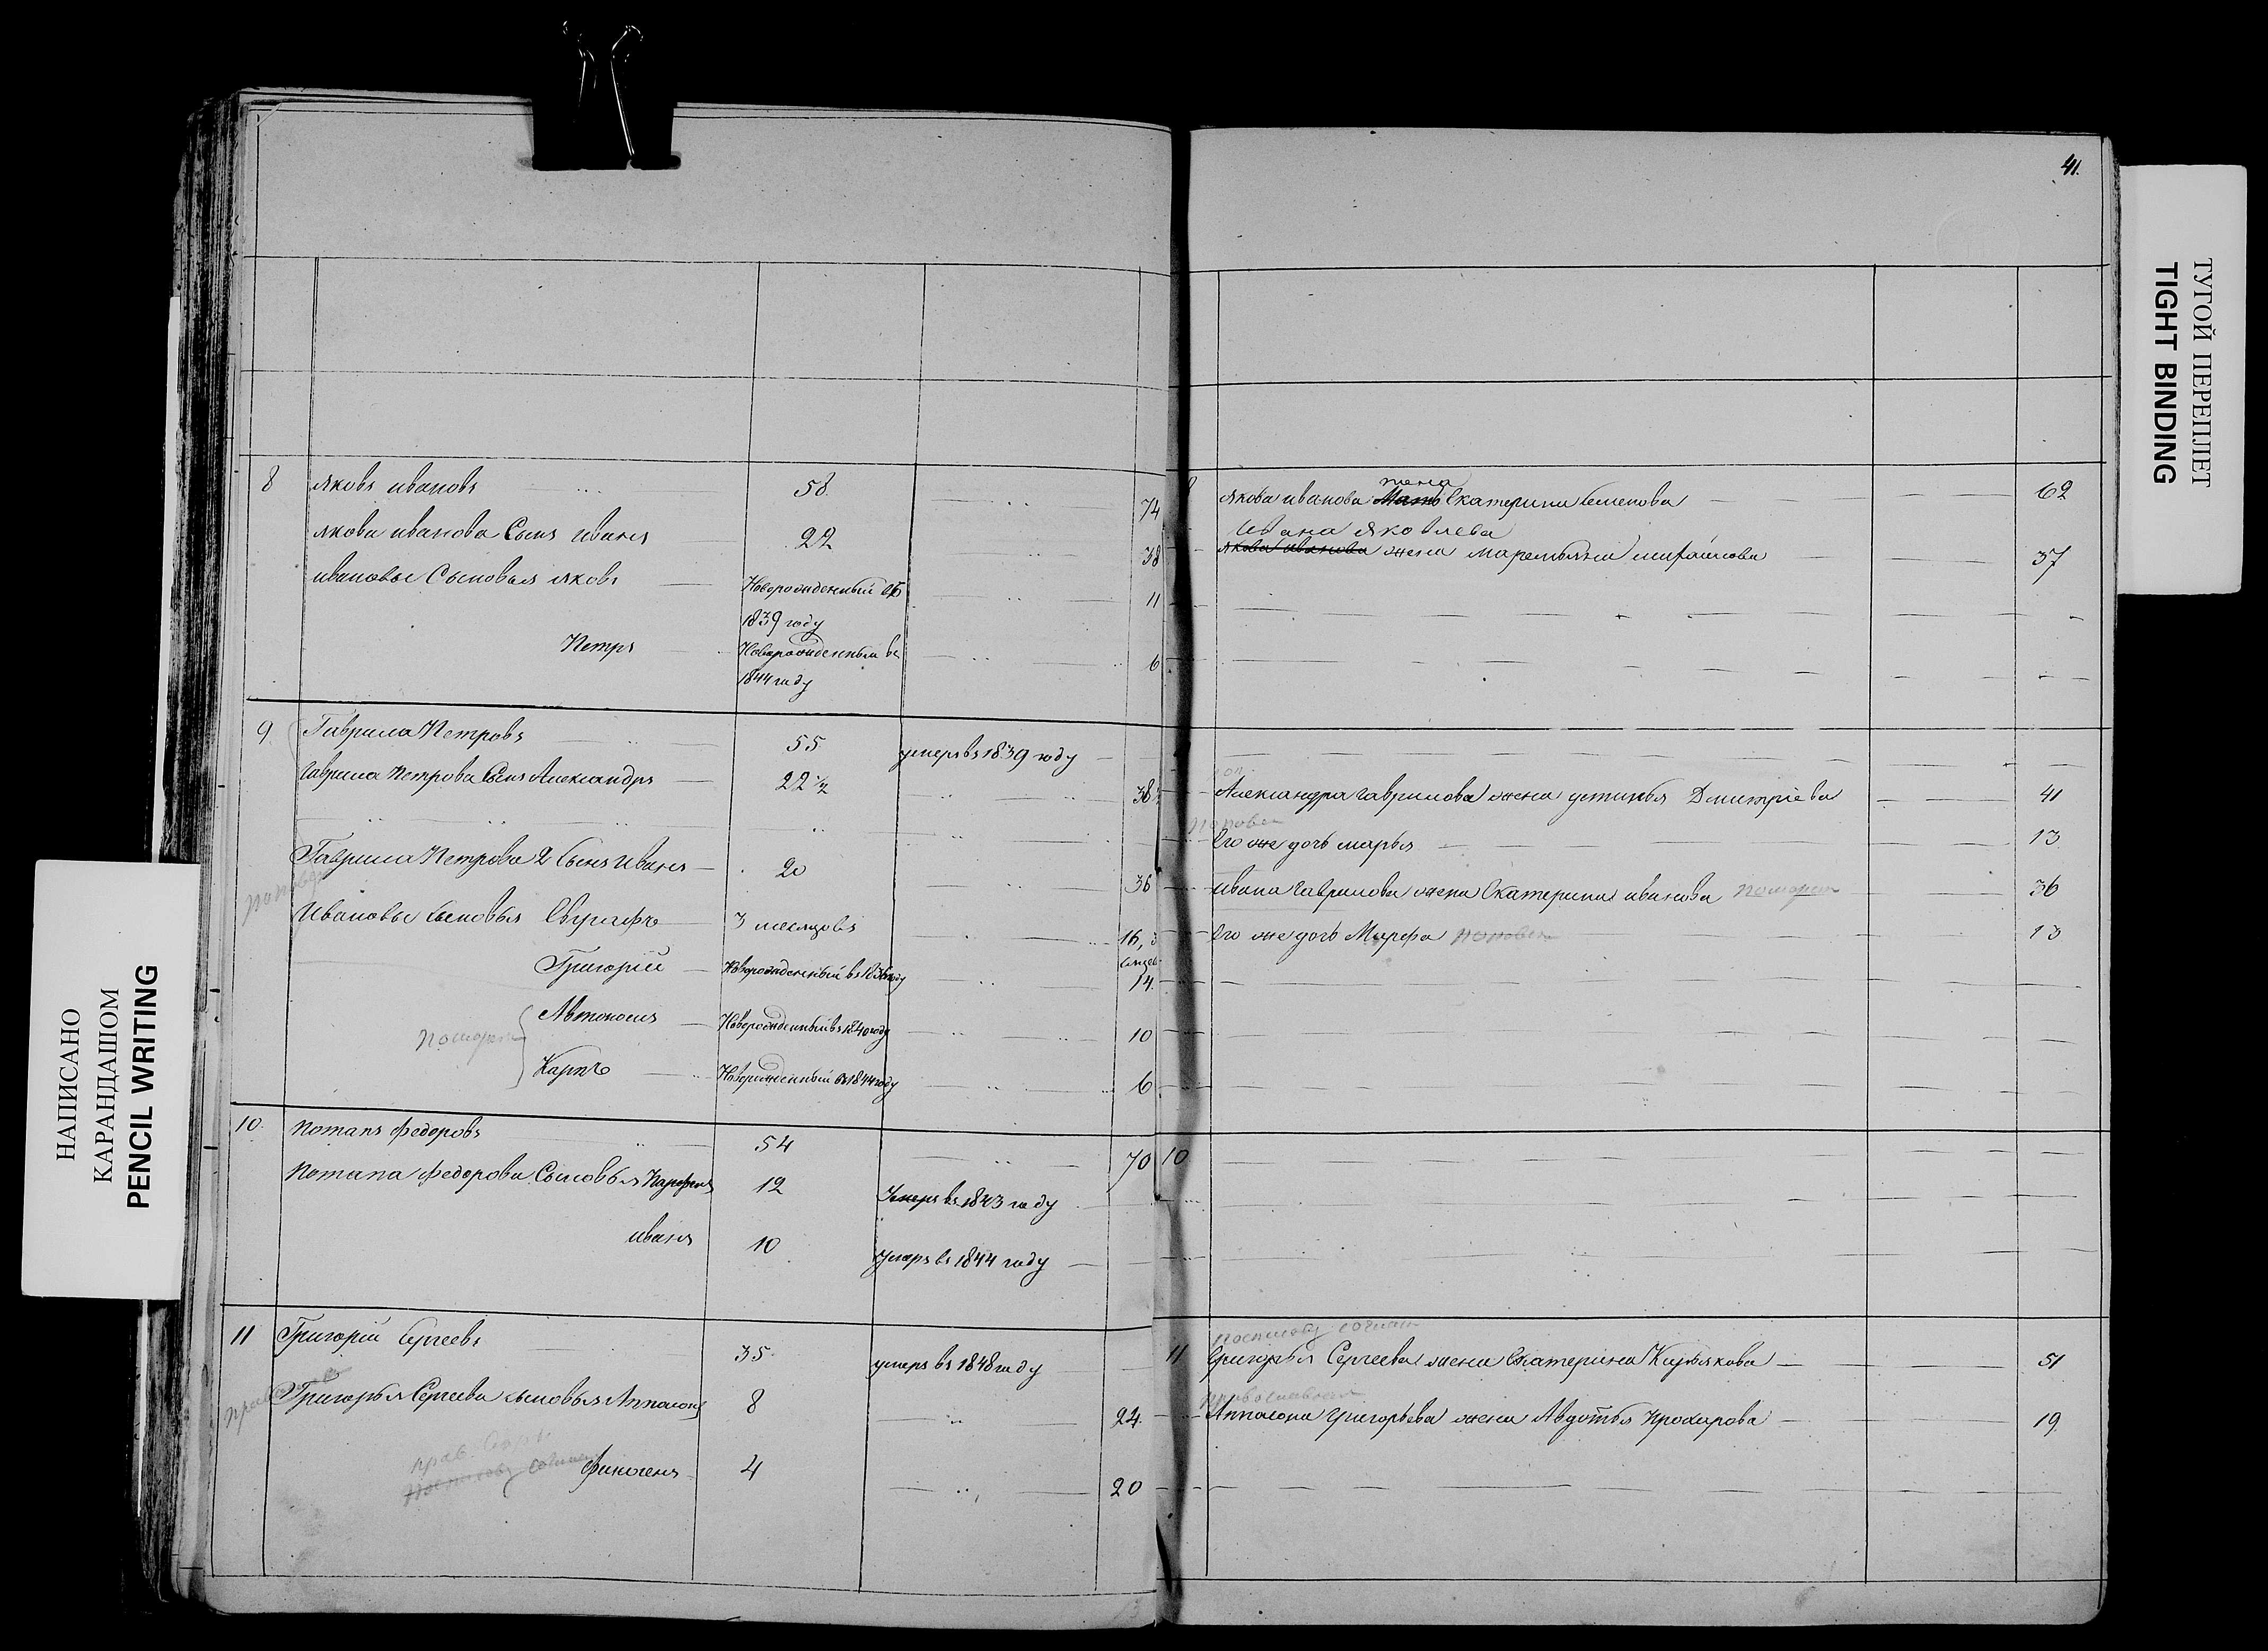 41.
8 Яковъ Ивановъ 58. 74
Якова Иванова Сынъ Иванъ 22 38
Ивановы Сыновья Яковъ Новорожденный въ 11
1839 году
Петръ Новорожденный въ 6
1844 году
9. Гаврила Петровъ 55 умеръ въ 1839 году
Гаврила Петрова Сынъ Александръ 22 1/2 38
Гаврила Петрова 2 Сынъ Иванъ 20 36
Ивановы сыновья Евграфъ 3 месяцовъ 16, 3
Григорій Новорожденный въ 1836 году 14.
Автономъ Новорожденный въ 1840 году 10
Карпъ Новорожденный въ 1844 году 6
10. Потапъ Федоровъ 54 70
Потапа Федорова Сыновья Парфенъ 12 Умеръ въ 1843 году
Иванъ 10 умеръ въ 1844 году
11 Григорій Сергеевъ 35 умеръ въ 1848 году
Григорья Сергеева сыновья Апполонъ 8 24.
прав.
Финогенъ 4 20
жена
8 Якова Иванова Мать Екатерина Семенова 62
Ивана Яковлева
Якова Иванова жена Маремьяна Михайлова 37
Александра Гаврилова жена Устинья Дмитріева 41
Его же дочь Марья 13
Ивана Гаврилова жена Екатерина Иванова 36
Его же дочь Марфа 13
10
11 Григорья Сергеева жена Екатерина 51
Апполона Григорьева жена Авдотья Прохирова 19
НАПИСАНО
КАРАНДАШОМ
PENCIL WRITING
ТУГОЙ ПЕРЕПЛЕТ
TIGHT BINDING